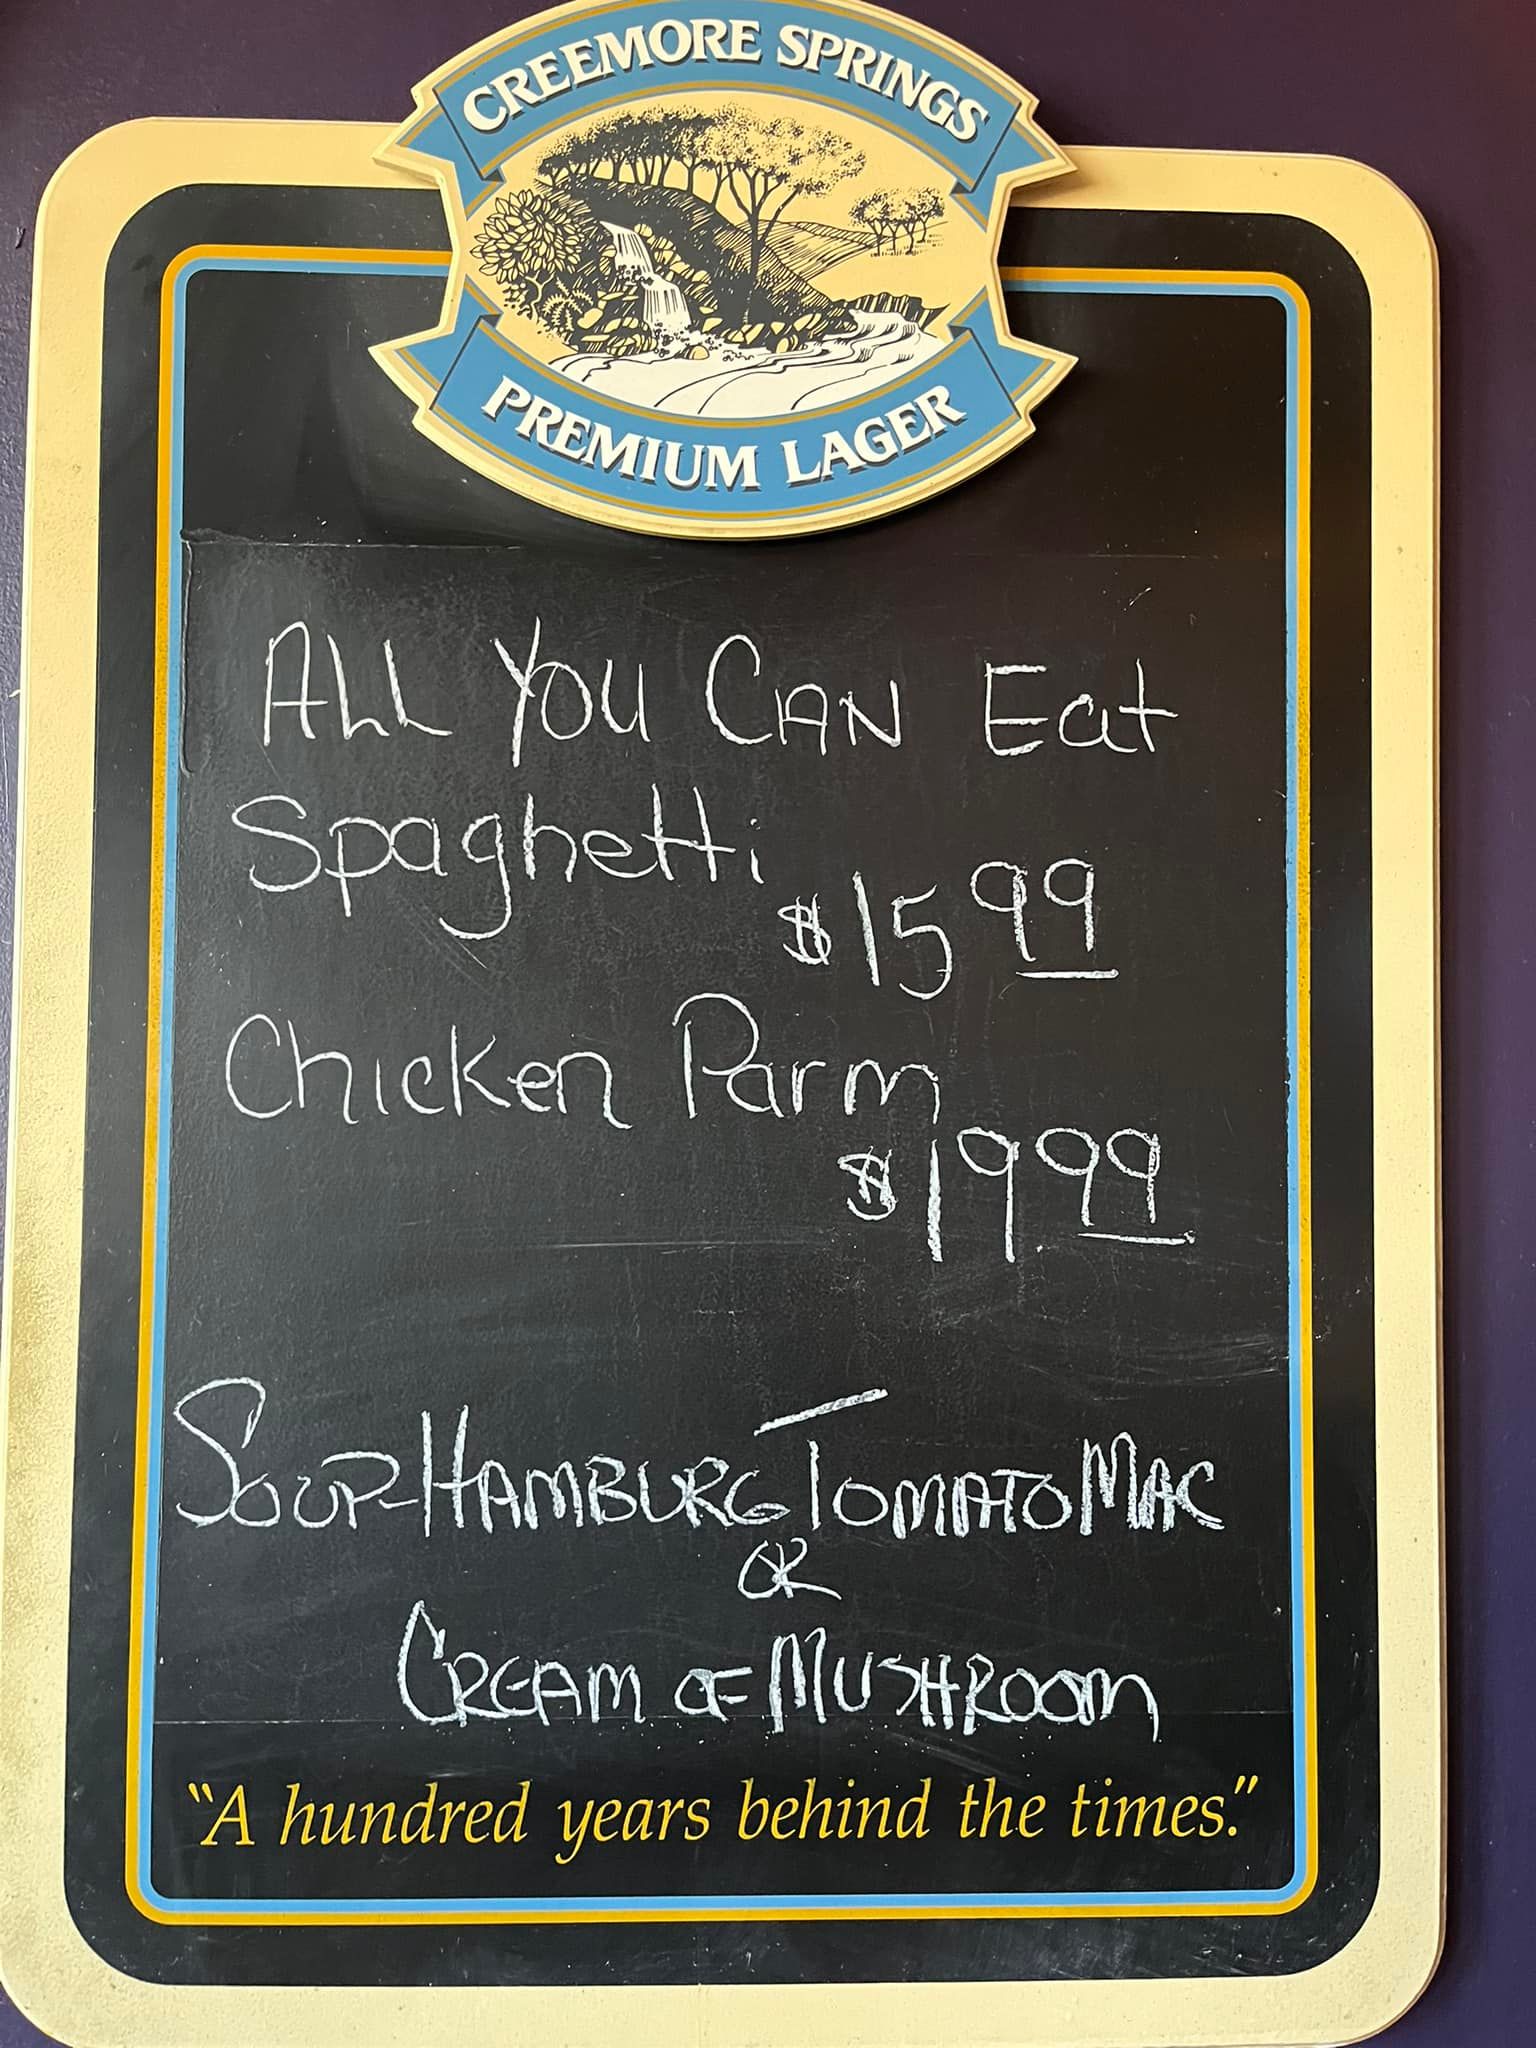 CREEMORE SPRINGS
PREMIUM LAGER
ALL YOU CAN Eat
Spaghetti
$15 99
Chicken Parm
$19 99
SOUP-HAMBURG TOMATO MAC
OR
CREAM OF MUSHROOM
"A hundred years behind the times."